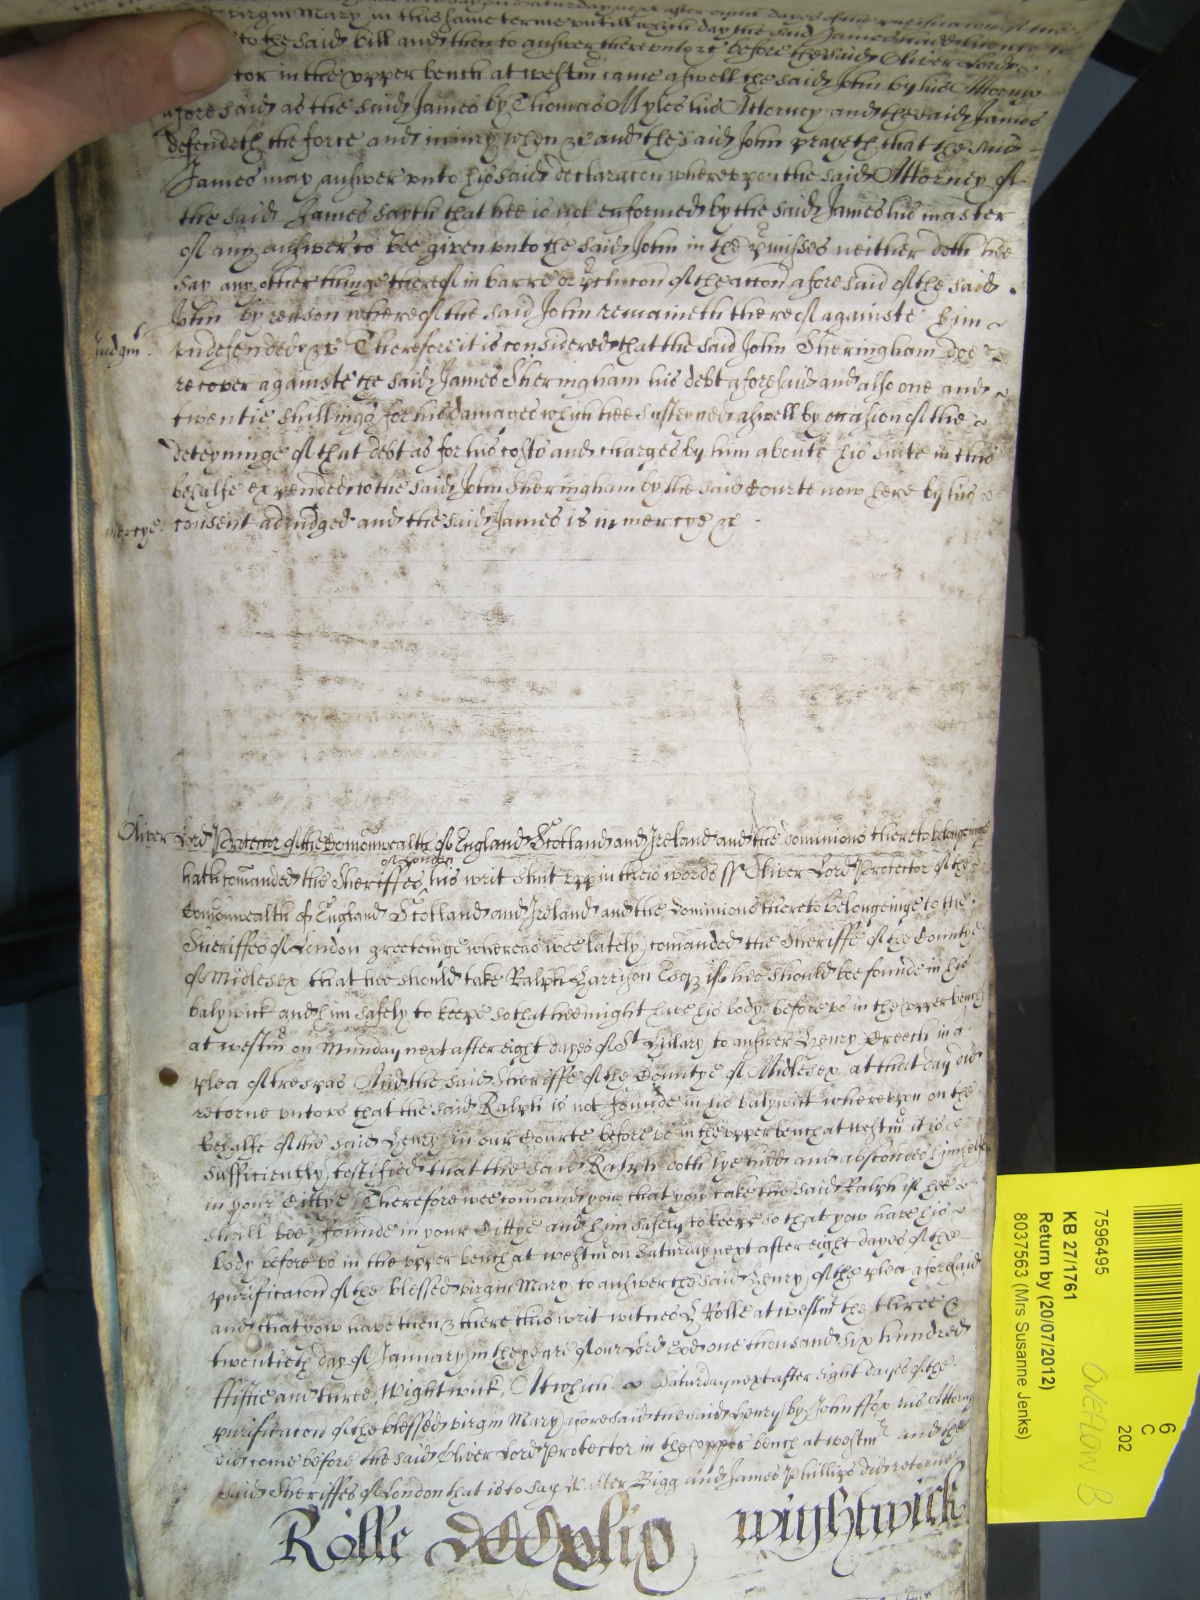 virgin Mary in this same terme untill which day the said James had licence to
to the said bill and then to answer thereunto &c before the said Oliver Lord
tor in the upper bench at westm came aswell the said John by his Attorny
aforesaid as the said James by Thomas Myles his Attorney and the said James
defendeth the force and iniury when &c and the said John prayeth that the said
James may answer unto his said declaracon whereupon the said Attorney of
the said James sayth that hee is not enformed by the said James his master
of any answer to bee given unto the said John in the premisses neither doth hee
say any other thinge thereof in barre or preclucon of the accon aforesaid of the said
John by reason whereof the said John remaineth thereof againste him
Judgmt
undefended &c Therefore it is considered that the said John Sheringham doe
recover againste the said James Sheringham his debt aforesaid and also one and
twentie shillings for his damages which hee susteyned aswell by occasion of the
deteyninge of that debt as for his costs and charges by him aboute his suite in this
behalfe expended to the said John Sheringham by the said Courte now here by his
mercye
consent adiudged and the said James is in mercye &c
Oliver Lord Protector of the Comonwealth of England Scotland and Ireland and the dominions thereto belongeinge
of London
hath comanded the Sheriffes his writ shut upp in theis words ss Oliver Lord Protector of the
Comonwealth of England Scotland and Ireland and the Dominions thereto belongeinge to the
Sheriffes of London greeteinge whereas wee lately comanded the Sheriffe of the Countye
of Midlesex that hee should take Ralph Harrison Esqr if hee should bee founde in his
balywick and him safely to keepe so that hee might have his body before us in the upper bench
at westm on Munday next after eight dayes of St Hilary to answer Henry Creech in a
plea of trespas And the said Sheriffe of the Countye of Midlesex at that day did
retorne unto us that the said Ralph is not founde in his balywick whereupon on the
behalfe of the said Henry in our Courte before us in the upper bench at westm it is
sufficiently testified that the said Ralph doth lye hidd and abscondes himselfe
in your Cittye Therefore wee comand you that you take the said Ralph if hee
shall bee founde in your Cittye and him safely to keepe so that you have his
body before us in the upper bench at westm on Saturday next after eight dayes of the
purificacon of the blessed virgin Mary to answer the said Henry of the plea aforesaid
and that you have then & there this writ witnes H Rolle at westm the three &
twentieth day of January in the yeare of our Lord God one thousand six hundred
ffiftie and three Wightwick, At which Saturday next after eight dayes of the
purificacon of the blessed virgin Mary aforesaid the said Henry by John ffox his Attorny
did come before the said Oliver Lord Protector in the upper bench at westmr and the
said Sheriffes of London that is to say Walter Bigg and James Phillips did retorne
Rolle wightwick
7596495
KB 27/1761
Return by (20/07/2012)
8037563 (Mrs Susanne Jenks)
6
C
202
OVEFLOW B